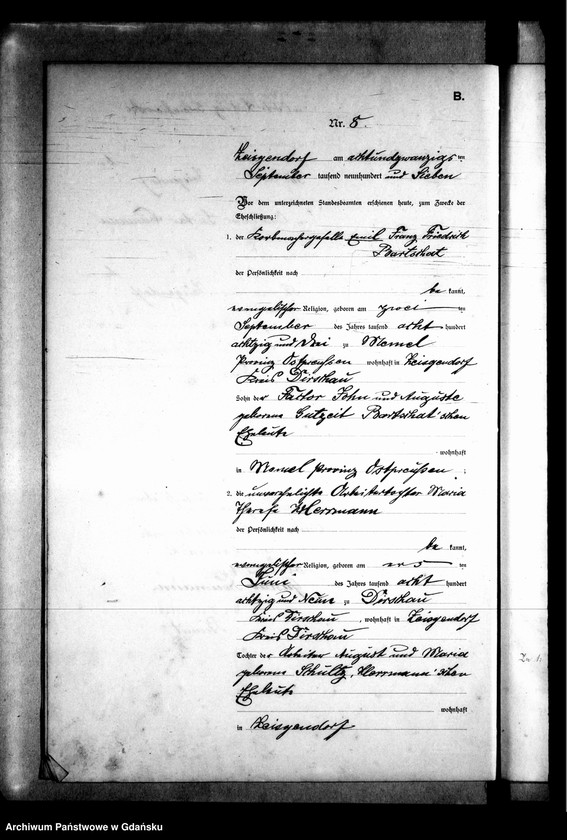 B.
Nr. 8.
Zeisgendorf am achtundzwanzigs ten
September tausend neunhundert und Sieben
Vor dem unterzeichneten Standesbeamten erschienen heute, zum Zwecke der
Eheschließung:
1. der Korbmachergeselle Emil Franz Friedrich
Bartschat
der Persönlichkeit nach
be kannt,
evangelischer Religion, geboren am zwei ten
September des Jahres tausend acht hundert
achtzig und drei zu Memel
Provinz Ostpreussen wohnhaft in Zeisgendorf
Kreis Dirschau
Sohn der Faktor John und Auguste
geborene Gutzeit Bartschat'schen
Eheleute
wohnhaft
in Memel Provinz Ostpreussen ;
2. die unverehelichte Arbeitertochter Maria
Therese Herrmann
der Persönlichkeit nach
be kannt,
evangelischer Religion, geboren am ers ten
Juni des Jahres tausend acht hundert
achtzig und Neun zu Dirschau
Kreis Dirschau , wohnhaft in Zeisgendorf
Kreis Dirschau
Tochter der Arbeiter August und Maria
geborene Schultz, Herrmann'schen
Eheleute
wohnhaft
in Zeisgendorf
Archiwum Państwowe w Gdańsku